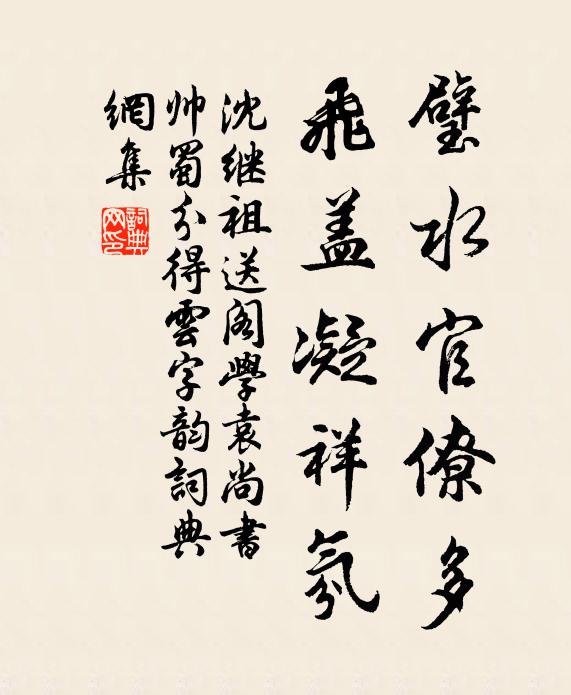 璧水官僚多
飛盖凝祥氛
沈继祖送阁學袁尚書
帅蜀分得雲字韵詞典
網集
詞典网印